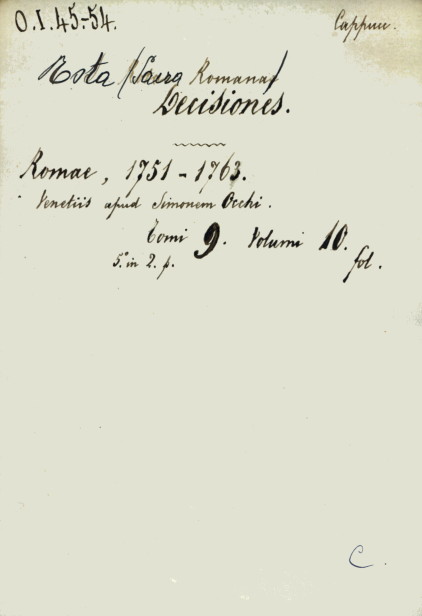 O.I.45-54.
Cappuc.
Rota (Sacra Romana)
Decisiones.
Romae, 1751-1763.
Venetiis apud Simonem Occhi.
Tomi 9. Volumi 10.
5.° in 2. p.
fol.
C.